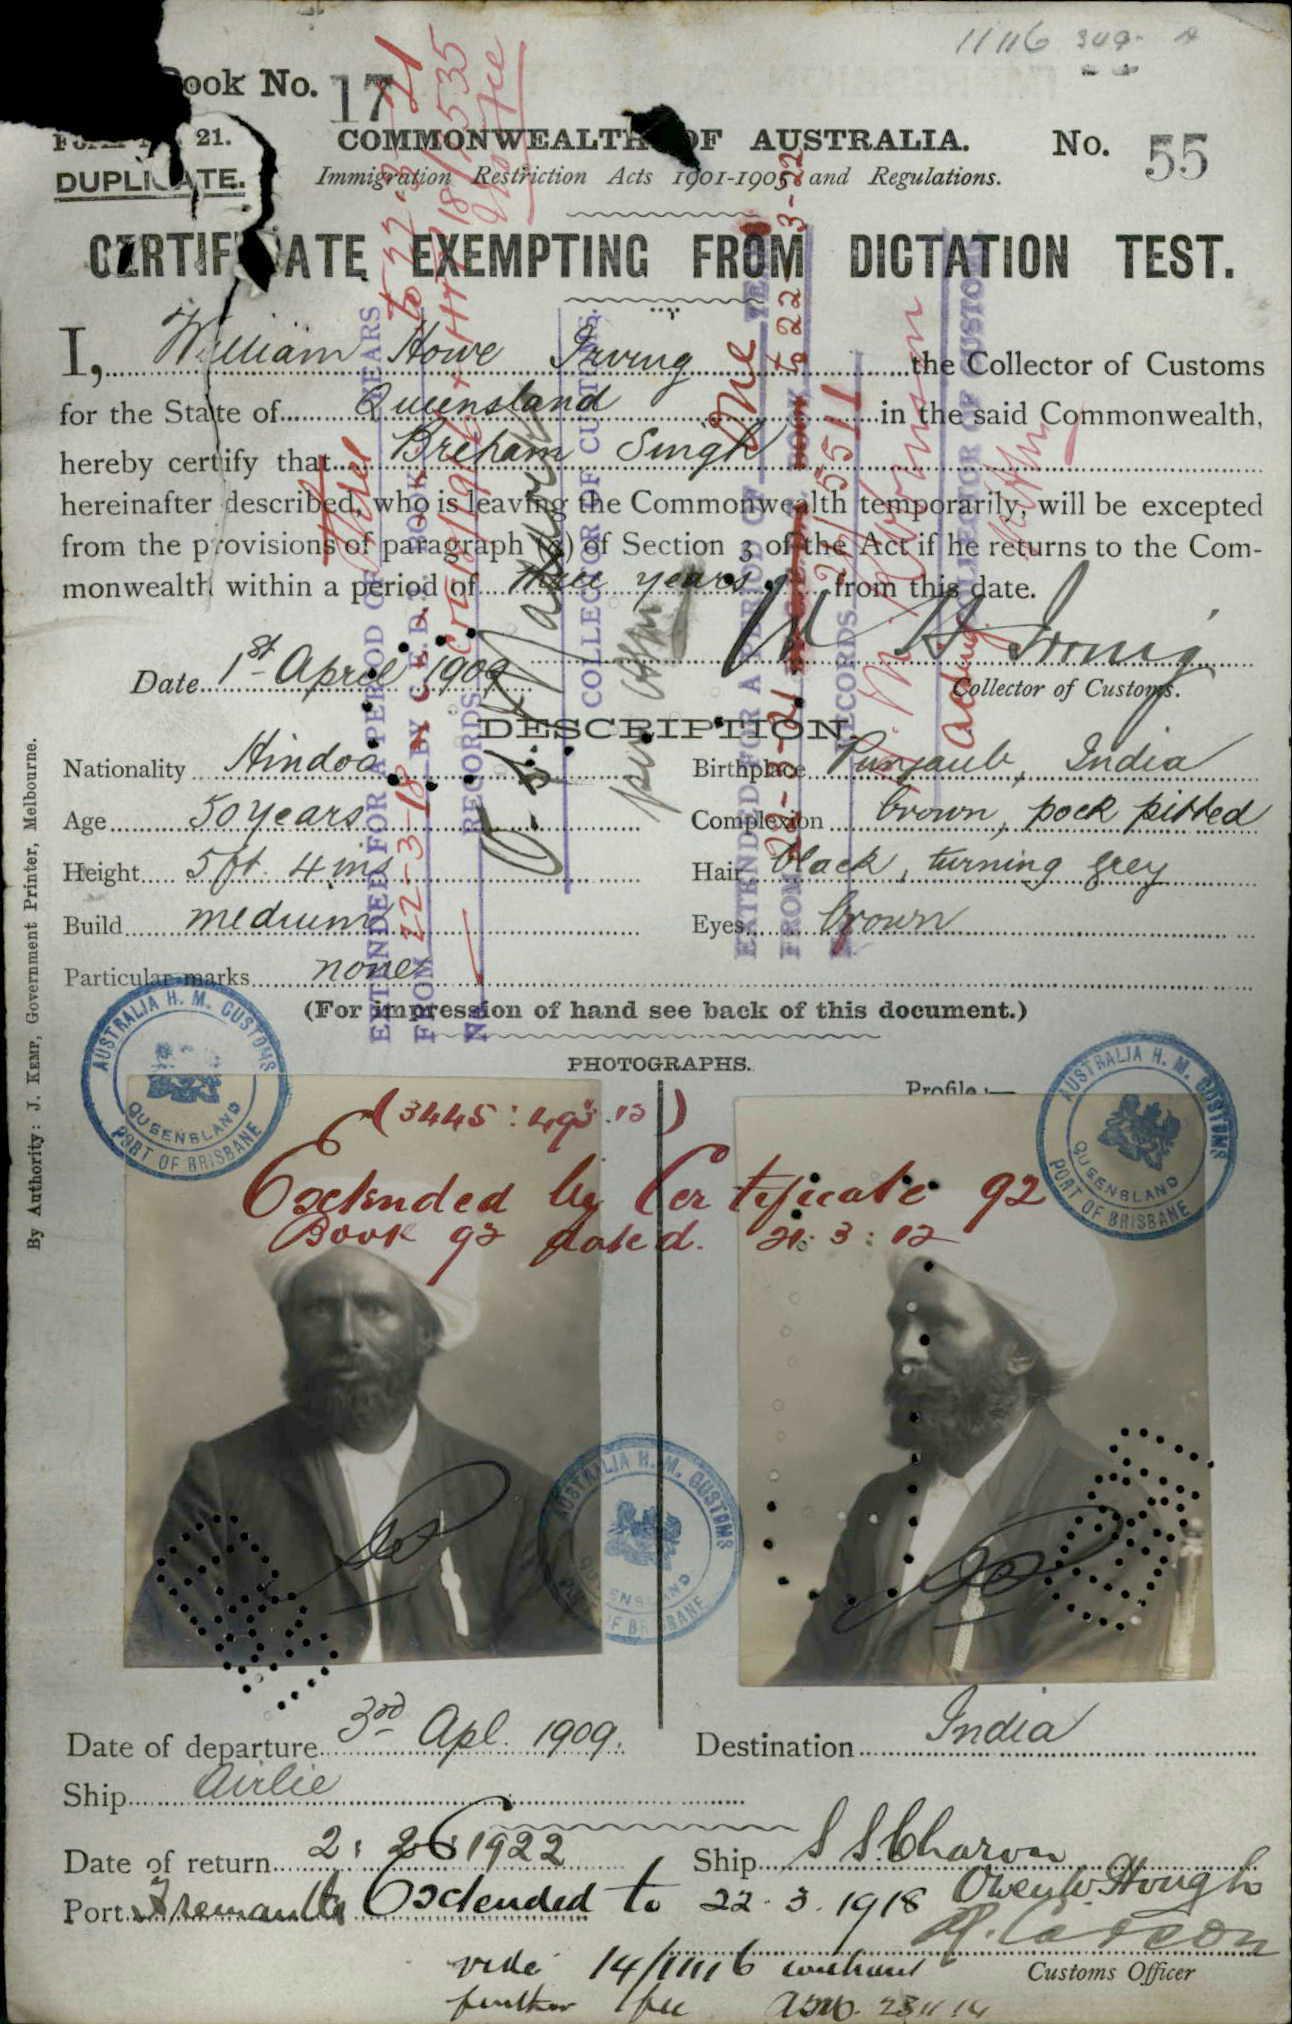 11116
Book No. 17
21.
DUPLICATE.
COMMONWEALTH OF AUSTRALIA.
No. 55
Immigration Restriction Acts 1901-1905 and Regulations.
CERTIFICATE EXEMPTING FROM DICTATION TEST.
I, William Howe Irving the Collector of Customs
for the State of Queensland in the said Commonwealth,
hereby certify that Breham Singh
hereinafter described, who is leaving the Commonwealth temporarily, will be excepted
from the provisions of paragraph (a) of Section 3 of the Act if he returns to the Com-
monwealth within a period of three years from this date.
W H Irving
Date 1st April 1909
Collector of Customs.
DESCRIPTION.
Nationality Hindoo
Birthplace Punjaub, India
Age 50 years
Complexion brown, pock pitted
Height 5 ft. 4 ins
Hair black, turning grey
Build medium
Eyes brown
Particular marks none
(For impression of hand see back of this document.)
PHOTOGRAPHS.
Profile:—
Extended by Certificate 92
Book 92 dated. 21:3:12
Date of departure 3rd Apl. 1909.
Destination India
Ship Airlie
Date of return 1922
Ship S S Charon
Port Fremantle Extended to 22.3.1918
Owen W Hough
Customs Officer
vide 14/11116 without
further fee
EXTENDED FOR A PERIOD OF YEARS
FROM 22-3-18 BY C.E.D.T. BOOK
RECORDS
COLLECTOR OF CUSTOMS.
EXTENDED FOR A PERIOD OF One YEAR
FROM 22-3-21 to 22-3-22
RECORDS 21/5511
Acting COLLECTOR OF CUSTOMS
AUSTRALIA H. M. CUSTOMS
QUEENSLAND
PORT OF BRISBANE
AUSTRALIA H. M. CUSTOMS
QUEENSLAND
PORT OF BRISBANE
AUSTRALIA H. M. CUSTOMS
QUEENSLAND
PORT OF BRISBANE
By Authority: J. KEMP, Government Printer, Melbourne.